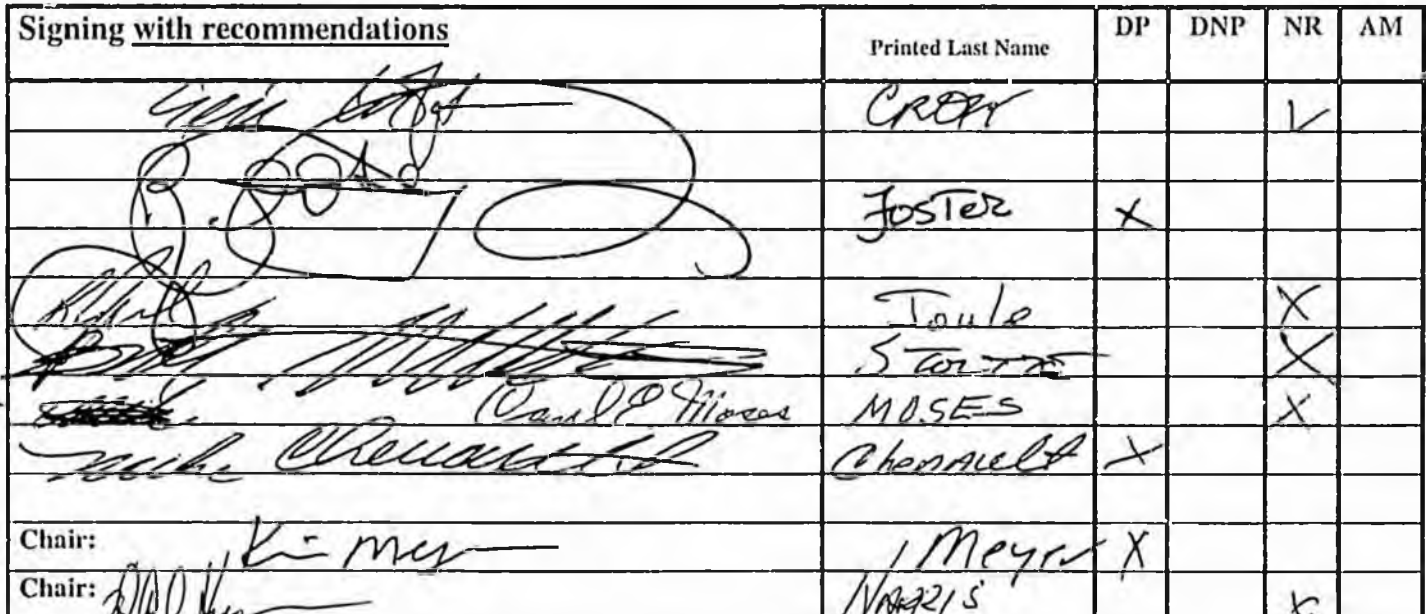 Signing with recommendations Printed Last Name DP DNP NR AM
CROFT V
FOSTER X
Toule X
X
Carl E Moses MOSES X
Mike Chenault Chenault X
Chair: Kevin Meyer Meyer X
Chair: Harris X